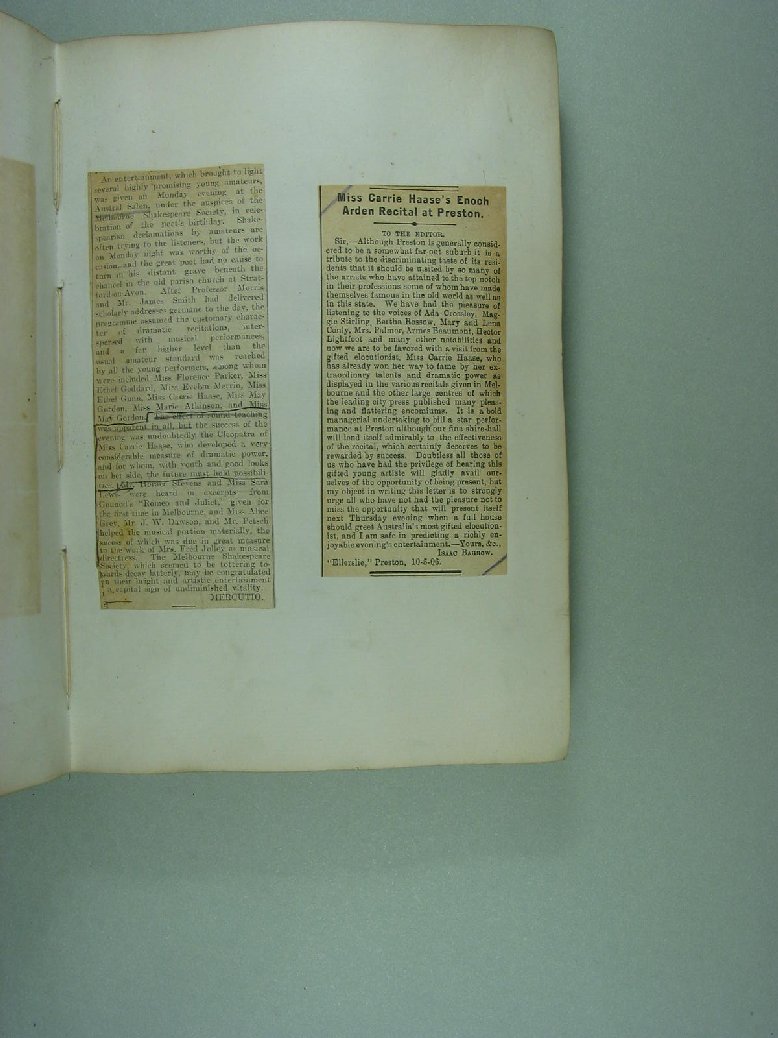 An entertainment, which brought to light
several highly promising young amateurs,
was given on Monday evening at the
Austral Salon, under the auspices of the
Melbourne Shakespeare Society, in cele-
bration of the poet's birthday. Shake-
spearian declamations by amateurs are
often trying to the listeners, but the work
on Monday night was worthy of the oc-
casion, and the great poet had no cause to
turn in his distant grave beneath the
chancel in the old parish church at Strat-
ford-on-Avon. After Professor Morris
and Mr. James Smith had delivered
scholarly addresses germane to the day, the
programme assumed the customary charac-
ter of dramatic recitations, inter-
spersed with musical performances,
and a far higher level than the
usual amateur standard was reached
by all the young performers, among whom
were included Miss Florence Parker, Miss
Ethel Goddard, Miss Evelyn Morrio, Miss
Ethel Gunn, Miss Carrie Haase, Miss May
Gordon, Miss Marie Atkinson, and Miss
May Gordon. The effect of sound teaching
was apparent in all, but the success of the
evening was undoubtedly the Cleopatra of
Miss Carrie Haase, who developed a very
considerable measure of dramatic power,
and for whom, with youth and good looks
on her side, the future must hold possibili-
ties. Mr. Horace Stevens and Miss Sara
Lewis were heard in excerpts from
Gounod's "Romeo and Juliet," given for
the first time in Melbourne, and Miss Alice
Grey, Mr J. W. Dawson, and Mr. Petsch
helped the musical portion materially, the
success of which was due in great measure
to the work of Mrs. Fred Jolley as musical
directress. The Melbourne Shakespeare
Society, which seemed to be tottering to-
wards decay latterly, may be congratulated
on their bright and artistic entertainment
a capital sign of undiminished vitality.
MERCUTIO.
Miss Carrie Haase's Enoch
Arden Recital at Preston.
TO THE EDITOR.
Sir,—Although Preston is generally consid-
ered to be a somewhat far-out suburb it is a
tribute to the discriminating taste of its resi-
dents that it should be visited by so many of
the artists who have attained to the top notch
in their professions some of whom have made
themselves famous in the old world as well as
in this state. We have had the pleasure of
listening to the voices of Ada Crossley, Mag-
gie Stirling, Bertha Rossow, Mary and Lena
Conly, Mrs. Palmer, Armes Beaumont, Hector
Lightfoot and many other notabilities and
now we are to be favored with a visit from the
gifted elocutionist, Miss Carrie Haase, who
has already won her way to fame by her ex-
traordinary talents and dramatic power as
displayed in the various recitals given in Mel-
bourne and the other large centres of which
the leading city press published many pleas-
ing and flattering encomiums. It is a bold
managerial undertaking to bill a star perfor-
mance at Preston although our fine shire-hall
will lend itself admirably to the effectiveness
of the recital, which certainly deserves to be
rewarded by success. Doubtless all those of
us who have had the privilege of hearing this
gifted young artiste will gladly avail our-
selves of the opportunity of being present, but
my object in writing this letter is to strongly
urge all who have not had the pleasure not to
miss the opportunity that will present itself
next Thursday evening when a full house
should greet Australia's most gifted elocution-
ist, and I am safe in predicting a richly en-
joyable evening's entertainment.—Yours, &c.,
ISAAC BARROW.
"Ellerslie," Preston, 10-5-06.